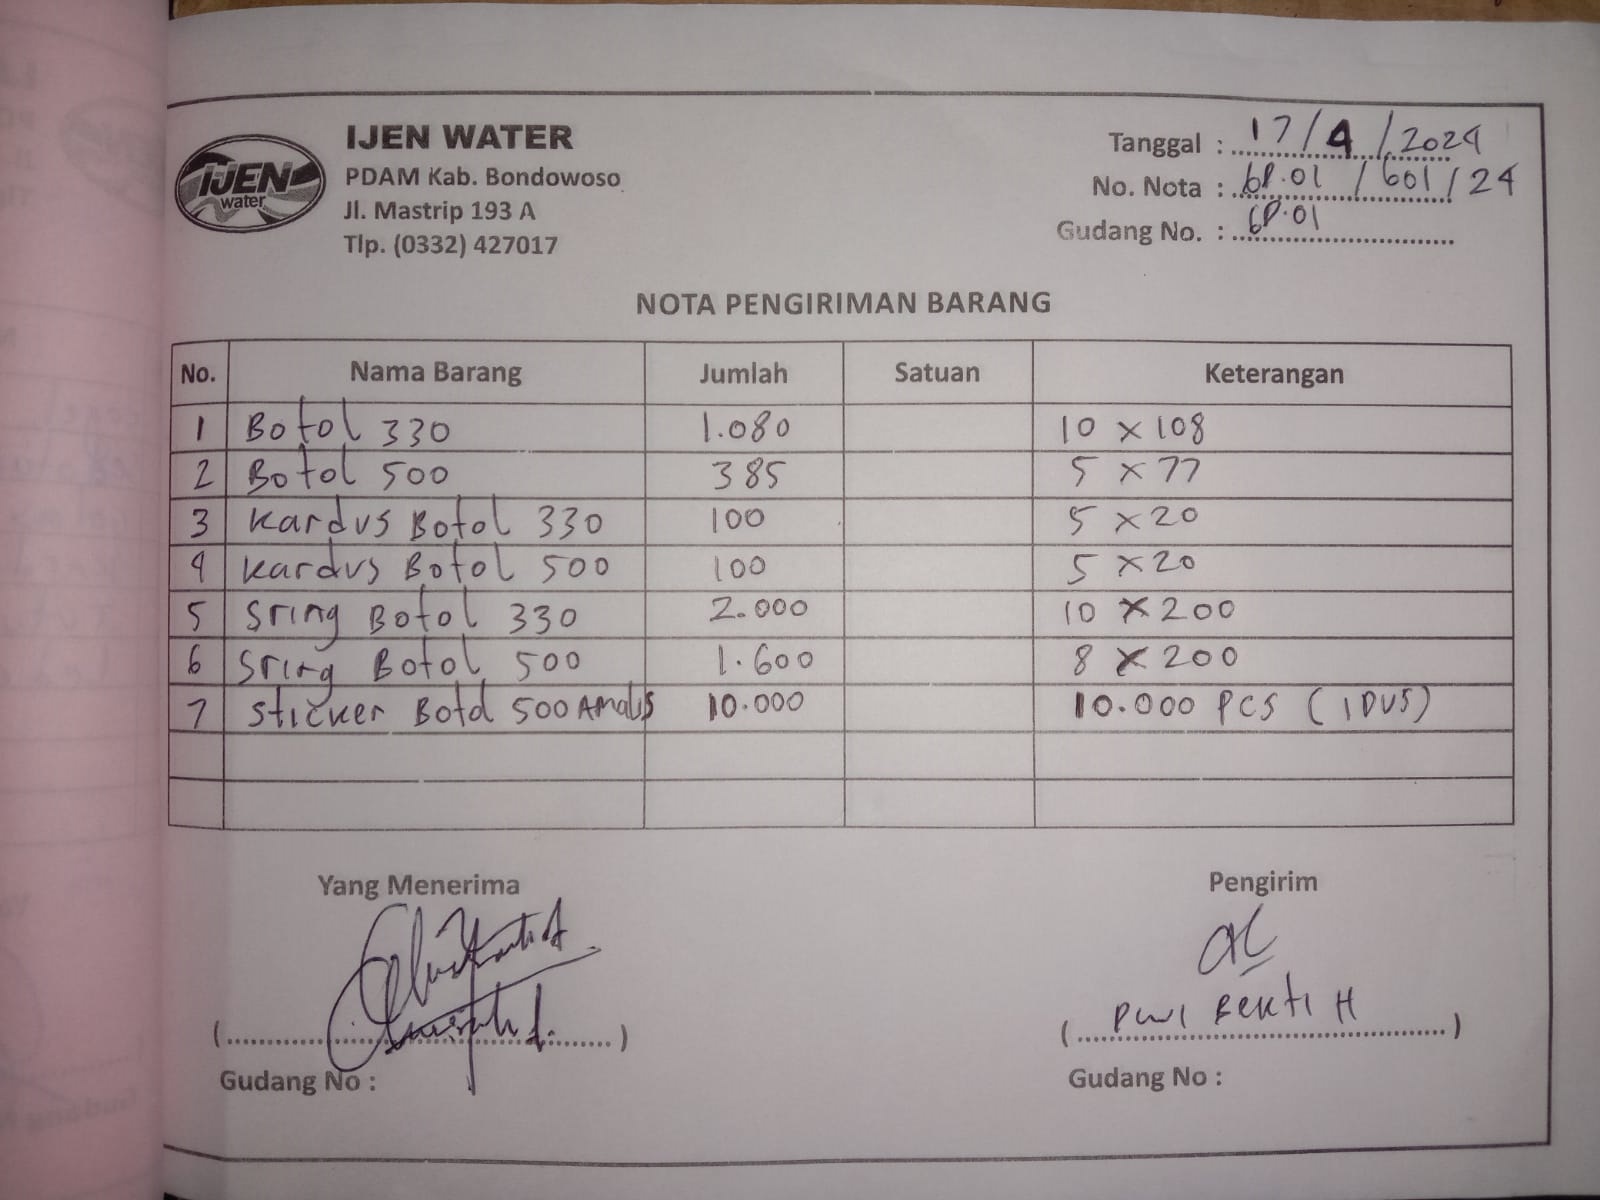 IJEN
water
IJEN WATER
PDAM Kab. Bondowoso
Jl. Mastrip 193 A
Tlp. (0332) 427017
Tanggal : 17/4/2024
No. Nota : 6P.01 / 601 / 24
Gudang No. : 6P.01
NOTA PENGIRIMAN BARANG
No. Nama Barang Jumlah Satuan Keterangan
1 Botol 330 1.080 10 x 108
2 Botol 500 385 5 x 77
3 Kardus Botol 330 100 5 x 20
4 Kardus Botol 500 100 5 x 20
5 Sring Botol 330 2.000 10 x 200
6 Sring Botol 500 1.600 8 x 200
7 Sticker Botol 500 Amalis 10.000 10.000 PCS (1 DUS)
Yang Menerima Pengirim
( ) ( Dwi Bekti H )
Gudang No : Gudang No :